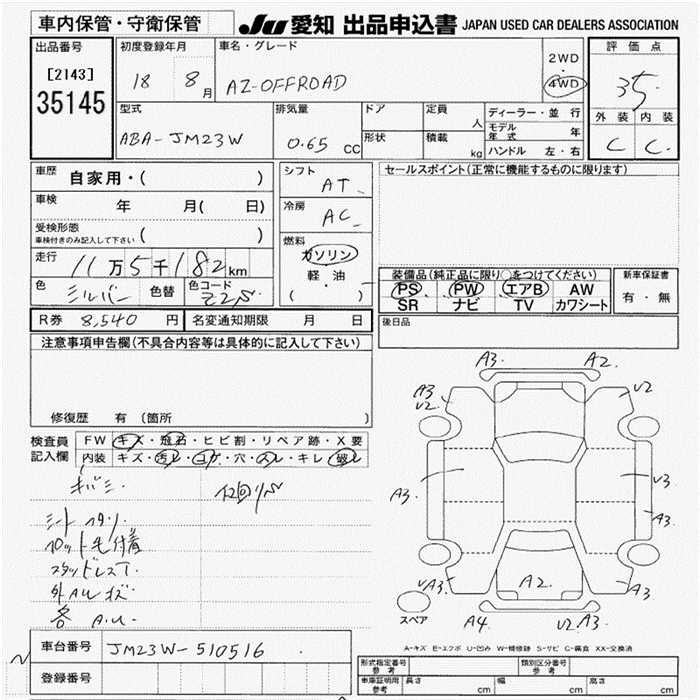 車内保管・守衛保管
JU 愛知 出品申込書 JAPAN USED CAR DEALERS ASSOCIATION
出品番号
[2143]
35145
初度登録年月
18 8月
車名・グレード
AZ-OFFROAD
2WD
・
4WD
評価点
3.5
外装 内装
C C
型式
ABA-JM23W
排気量
0.65 CC
ドア
形状
定員
人
積載
kg
ディーラー・並行
モデル年式 年
ハンドル 左・右
車歴
自家用・( )
車検 年 月( 日)
受検形態
車検付きのみ記入して下さい ( )
走行
11万5千182km
色 シルバー 色替 色コード Z2S
シフト AT
冷房 AC
燃料
ガソリン
軽・油
( )
セールスポイント(正常に機能するものに限ります)
装備品(純正品に限り○をつけてください)
PS PW エアB AW
SR ナビ TV カワシート
新車保証書
有・無
R券 8,540 円 名変通知期限 月 日
後日品
注意事項申告欄(不具合内容等は具体的に記入して下さい)
修復歴 有 (箇所 )
検査員
記入欄
FW キズ・飛石・ヒビ割・リペア跡・X要
内装 キズ・汚レ・コゲ・穴・スレ・キレ・破レ
キバミ
シートスタリ
フロット毛付着
スタッドレスT
外AWキズ
各A.U.
A3. A2.
A3
V2
V2
A3.
V3
A3
A3
A2.
A3
A4
V2 A3.
スペア
A-キズ E-エクボ U-凹み W-補修跡 S-サビ C-腐食 XX-交換済
車台番号 JM23W-510516
登録番号
形式指定番号
参考
類別区分番号
参考
車庫証明用
参考
長さ cm 幅 cm 高さ cm